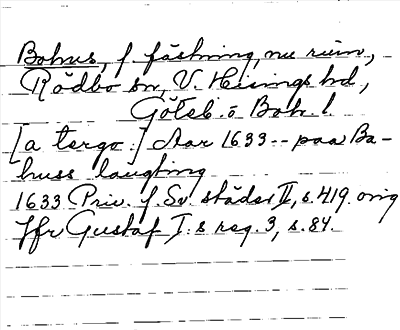 Bohus, f. fästning, nu ruin,
Rödbo sn, V. Hisings hd,
Göteb. o Boh. l.
[a tergo:] Aar 1633 -- paa Ba-
huss laugting
1633 Priv. f. Sv. städer II, s. 419. orig
Jfr Gustaf I:s reg. 3, s. 84.